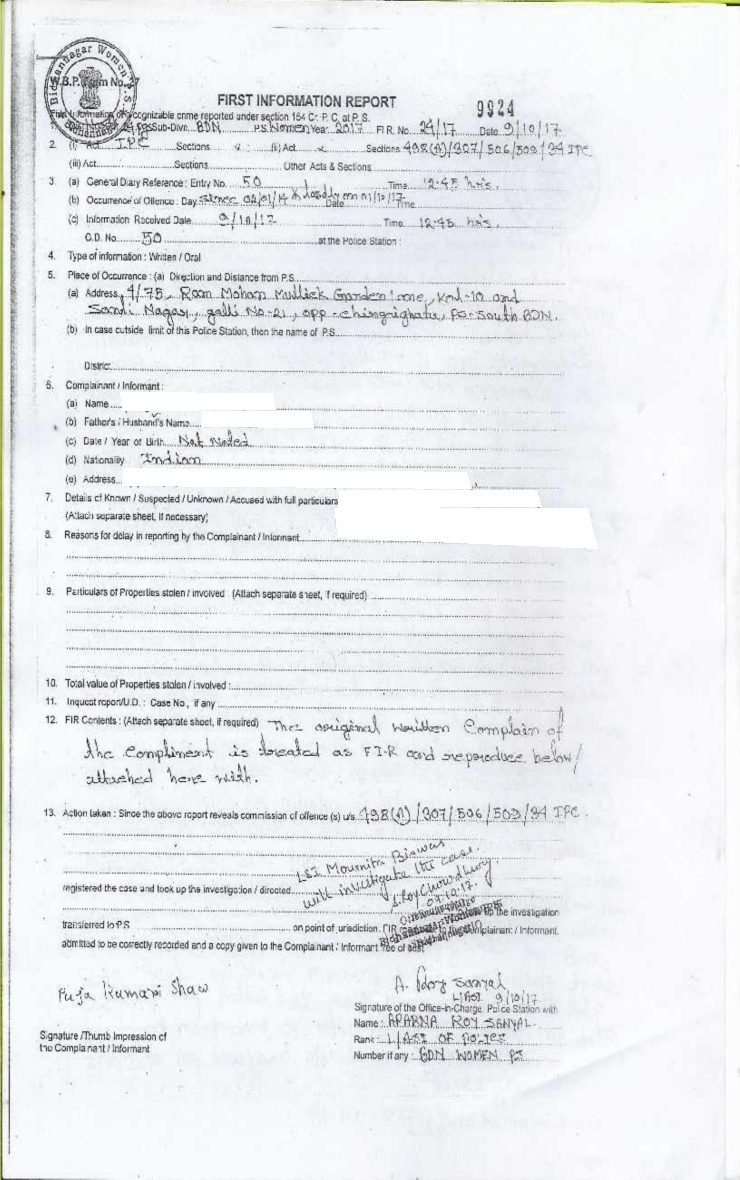 Bidhannagar Women P.S.
W.B.P. Form No. 27
FIRST INFORMATION REPORT
9924
First Information of cognizable crime reported under section 154 Cr. P. C. at P. S.
1. 24 Pgs Sub-Divn. BDN P.S. Women Year. 2017 F I R. No. 24/17 Date 9/10/17
2. (i) Act I.P.C Sections (ii) Act Sections 498(A)/307/506/509/34 IPC
(iii) Act Sections Other Acts & Sections
3. (a) General Diary Reference : Entry No. 50 Time 12:45 hrs.
(b) Occurrence of Offence : Day Since 02/01/14 & lastly on 01/10/17 Date Time
(c) Information Received Date 9/10/17 Time 12:45 hrs.
G.D. No. 50 at the Police Station :
4. Type of information : Written / Oral
5. Place of Occurrence : (a) Direction and Distance from P.S.
(a) Address 4/75, Ram Mohan Mullick Garden Lane, Kol-10 and
Nagar, galli No-21, opp - Chingrighata, PS- South BDN.
(b) In case outside limit of this Police Station, then the name of P.S.
District
6. Complainant / Informant :
(a) Name
(b) Father's / Husband's Name
(c) Date / Year of Birth Not Noted
(d) Nationality Indian
(e) Address
7. Details of Known / Suspected / Unknown / Accused with full particulars
(Attach separate sheet, if necessary)
8. Reasons for delay in reporting by the Complainant / Informant
9. Particulars of Properties stolen / involved : (Attach separate sheet, if required)
10. Total value of Properties stolen / involved :
11. Inquest report/U.D. : Case No., if any
12. FIR Contents : (Attach separate sheet, if required) The original written Complain of
the Compliment is treated as F.I.R and reproduce below/
attached here with.
13. Action taken : Since the above report reveals commission of offence (s) u/s. 498(A)/307/506/509/34 IPC.
LSI Moumita Biswas
will investigate the case.
registered the case and took up the investigation / directed
Roy Chowdhury
09.10.17.
to the investigation
transferred to P.S on point of jurisdiction. FIR to the Complainant / Informant
admitted to be correctly recorded and a copy given to the Complainant / Informant free of cost
Puja Kumari Shaw
A. Roy Sanyal
L/ASI 9/10/17
Signature of the Office-in-Charge, Police Station with
Name : APARNA ROY SANYAL
Signature /Thumb Impression of
the Complainant / Informant
Rank : L/ASI OF POLICE
Number if any : BDN WOMEN PS